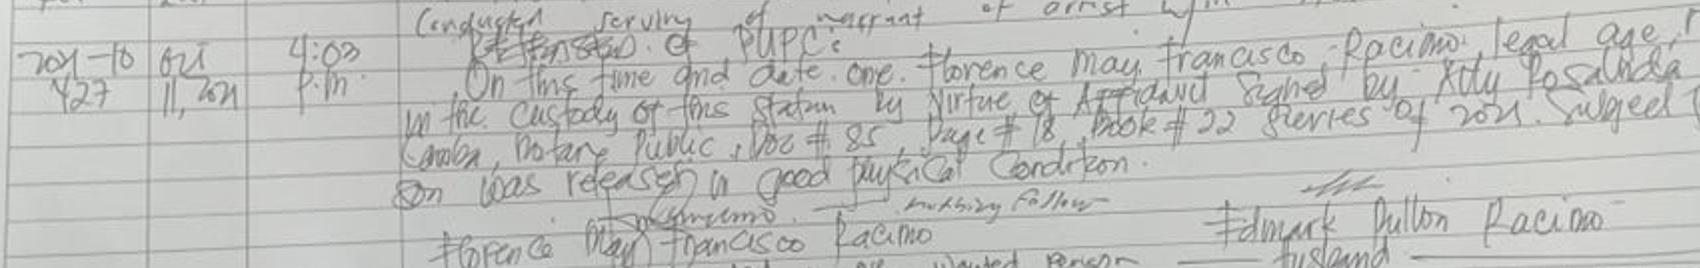 Conducted serving of warrant of arrest
2021-10 Oct 4:03 Released of PUPC:
427 11, 2021 P.m On this time and date. one. Florence May Francisco Racimo, legal age,
in the custody of this Station by virtue of Affidavit Signed by Atty Rosalinda
Camba, Notary Public, Doc # 85, Page # 18, Book # 22 Sierries of 2021. Subject
on was released in good physical Condition.
nothing Follow
Florence May Francisco Racimo Edmark Dullon Racimo
wanted person Husband